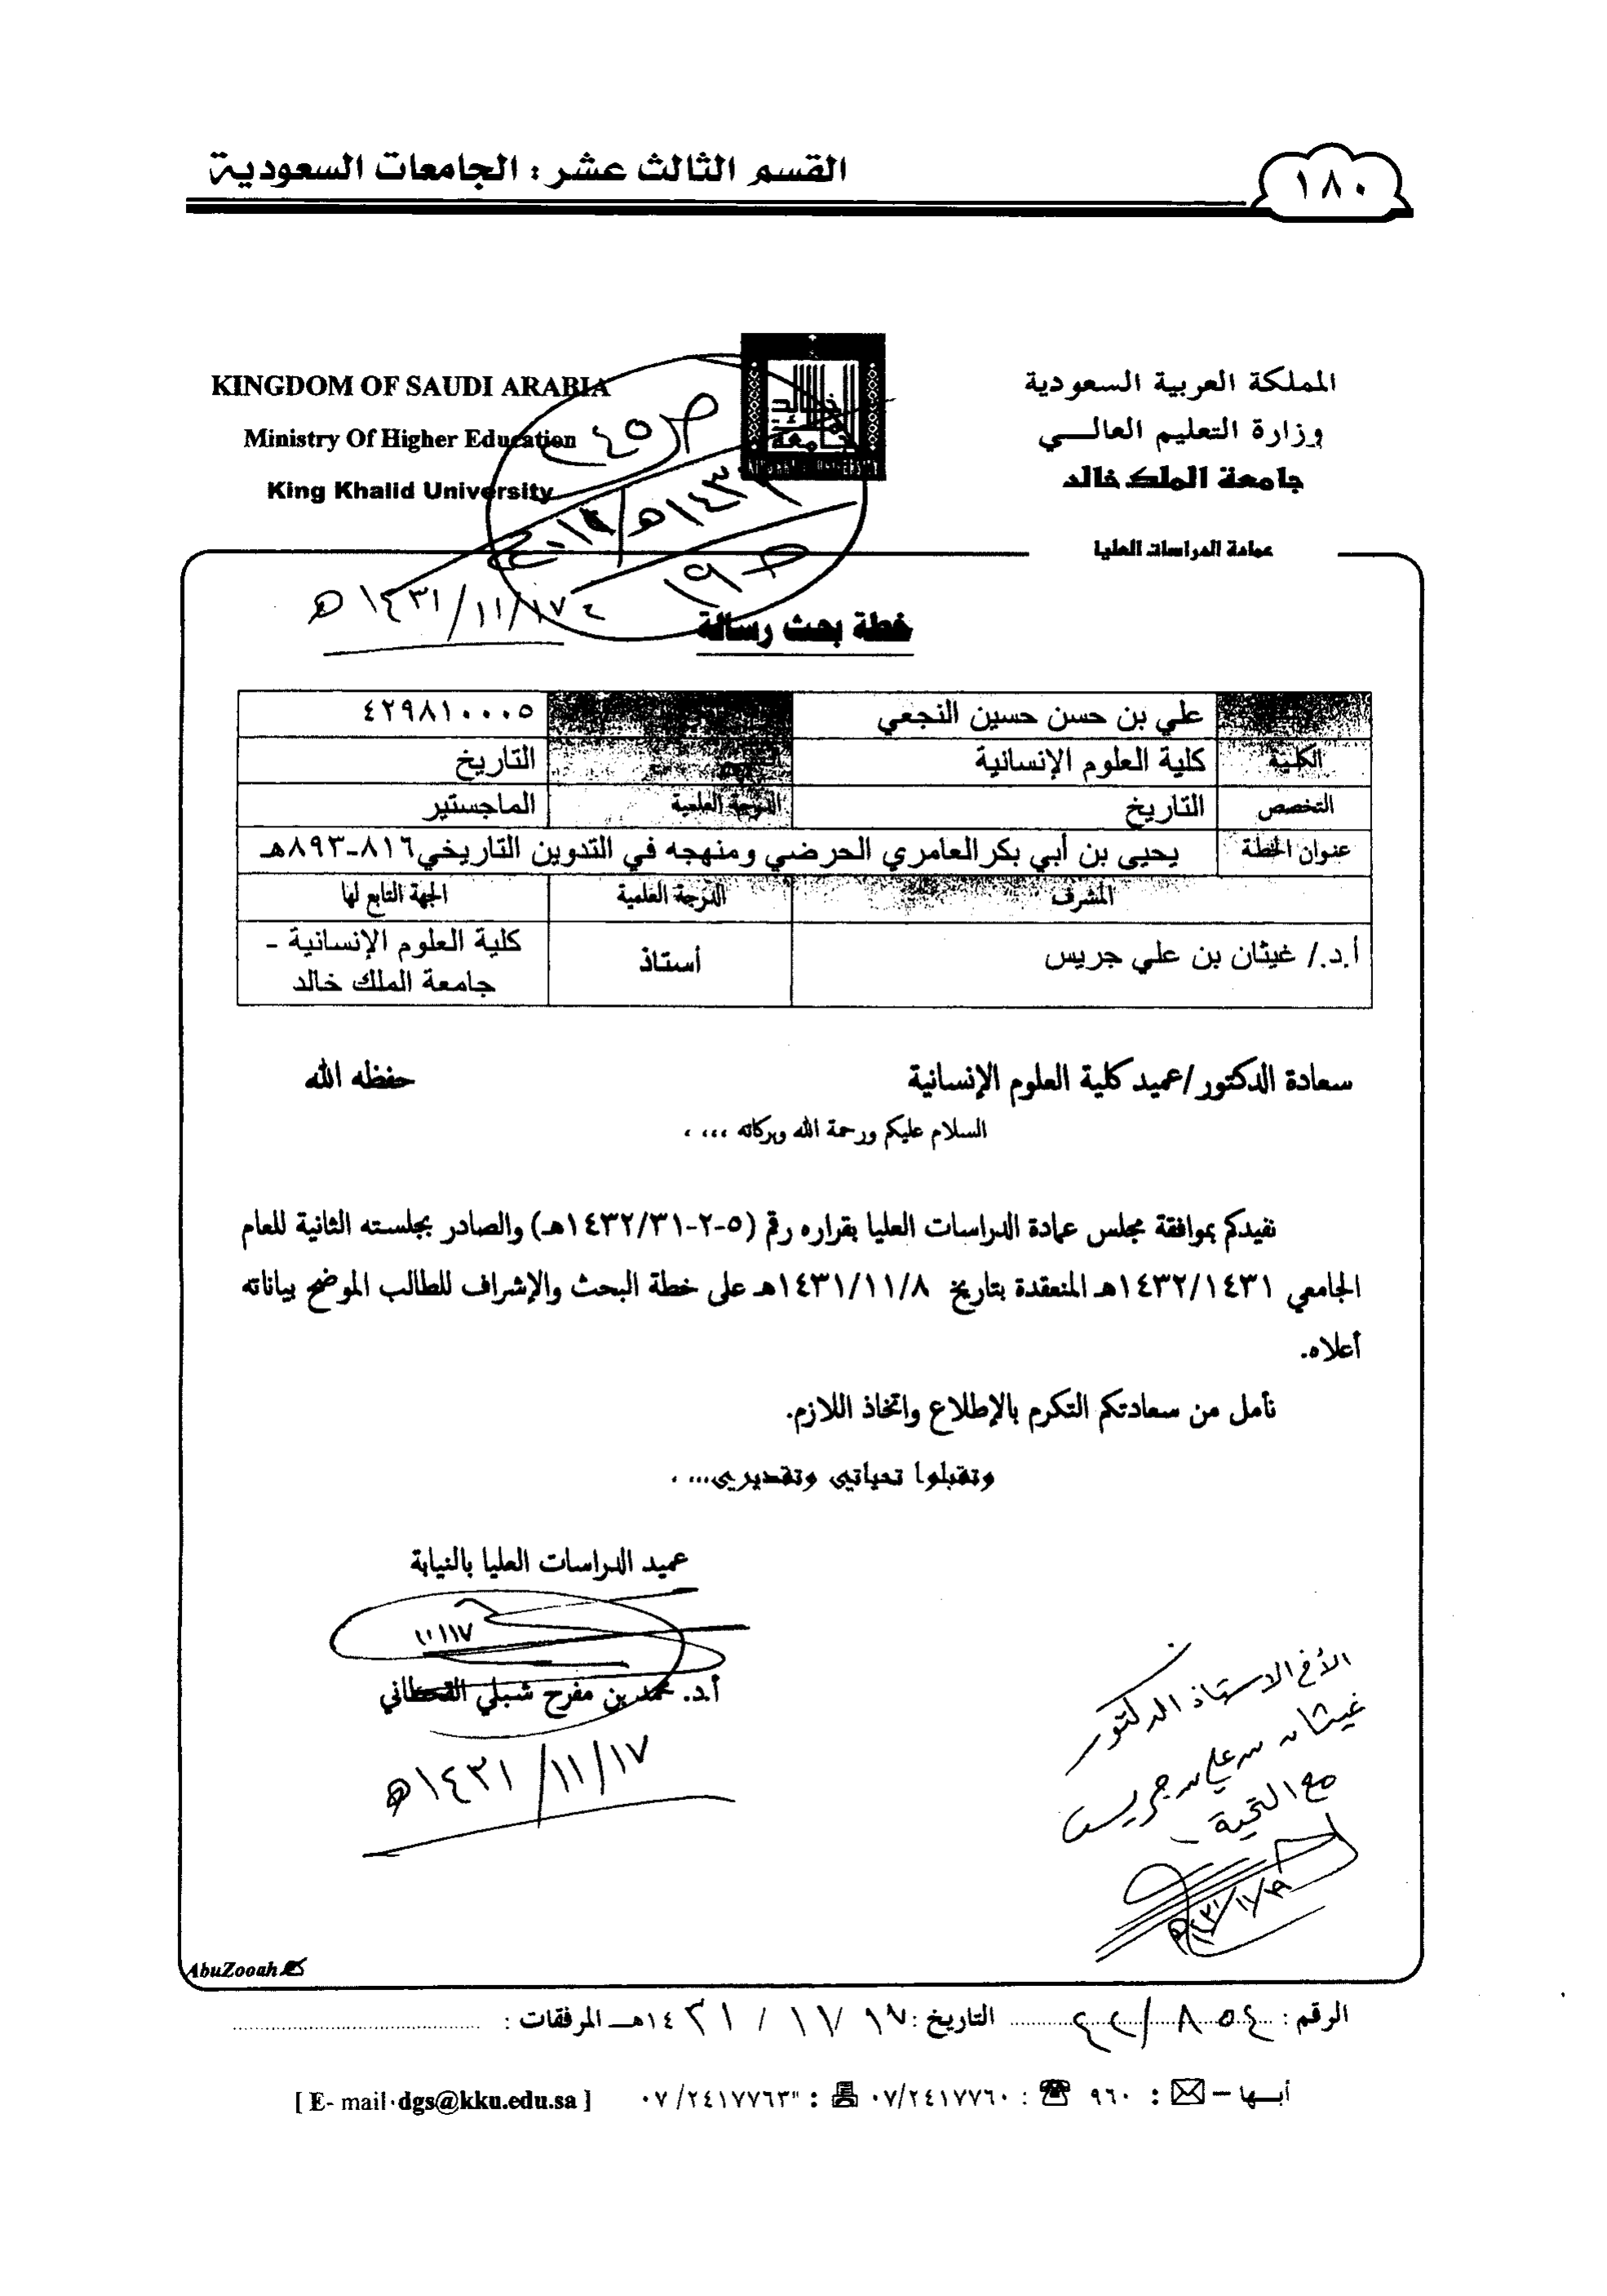 القسم الثالث عشر : الجامعات السعودية
١٨٠
KINGDOM OF SAUDI ARABIA
Ministry Of Higher Education
King Khalid University
المملكة العربية السعودية
وزارة التعليم العالـــي
جامعة الملك خالد
عمادة الدراسات العليا
١٤٣١/١١/١٧هـ
خطة بحث رسالة
علي بن حسن حسين النجعي ٤٢٩٨١٠٠٠٥
الكلية كلية العلوم الإنسانية التاريخ
التخصص التاريخ الدرجة العلمية الماجستير
عنوان الخطة يحيى بن أبي بكر العامري الحرضي ومنهجه في التدوين التاريخي ٨١٦-٨٩٣هـ
المشرف الدرجة العلمية الجهة التابع لها
أ.د./ غيثان بن علي جريس أستاذ كلية العلوم الإنسانية -
جامعة الملك خالد
سعادة الدكتور/عميد كلية العلوم الإنسانية حفظه الله
السلام عليكم ورحمة الله وبركاته ... ،
نفيدكم بموافقة مجلس عمادة الدراسات العليا بقراره رقم (٥-٢-١٤٣٢/٣١هـ) والصادر بجلسته الثانية للعام
الجامعي ١٤٣٢/١٤٣١هـ المنعقدة بتاريخ ١٤٣١/١١/٨هـ على خطة البحث والإشراف للطالب الموضح بياناته
أعلاه.
نأمل من سعادتكم التكرم بالإطلاع واتخاذ اللازم.
وتقبلوا تحياتي وتقديري... ،
عميد الدراسات العليا بالنيابة
١١/١٧
أ.د. محمد بن مفرح شبلي القحطاني
١٤٣١/١١/١٧هـ
الأخ الاستاذ الدكتور
غيثان بن علي بن جريس
مع التحية -
AbuZooah
الرقم : ٤٢/٨٥٤ التاريخ : ١٤٣١/١١/١٧هـ المرفقات :
أبـها – : ٩٦٠ : ٠٧/٢٤١٧٧٦٠ : ٠٧/٢٤١٧٧٦٣ [ E- mail·dgs@kku.edu.sa ]